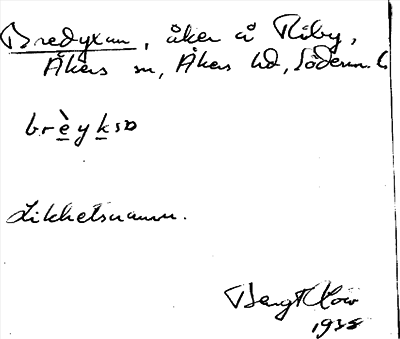 Bredyxan, åker å Riby,
Åkers sn, Åkers hd, Söderm. l.
brèyksɒ
Likhetsnamn.
Bengt
1935